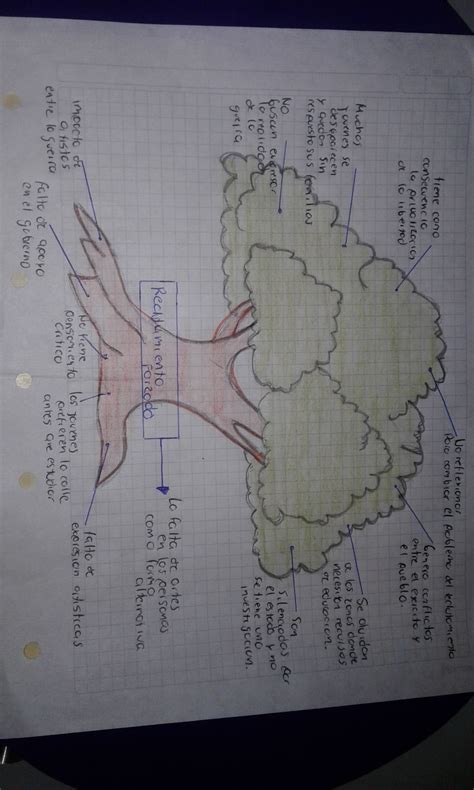 No reflexionar
para cambiar el problema del reclutamiento
tiene como
consecuencia
la privatizacion
de la libertad
Genera conflictos
entre el ejercito y
el pueblo.
Muchos
jovenes se
desaparecen
y quedan sin
respuesta sus familias
Se olvidan
a las zonas donde
necesitan recursos
de educacion.
No
buscan expresar
la realidad
de la
guerra
Son
silenciados por
el estado y no
se tiene una
investigacion.
Reclutamiento
forzado
La falta de artes
en las personas
como forma
alternativa
impacto de
artistas
entre la guerra
falta de apoyo
en el gobierno
No tiene
pensamiento
critico
los jovenes
prefieren la calle
antes que estudiar
falta de
expresion artisticas